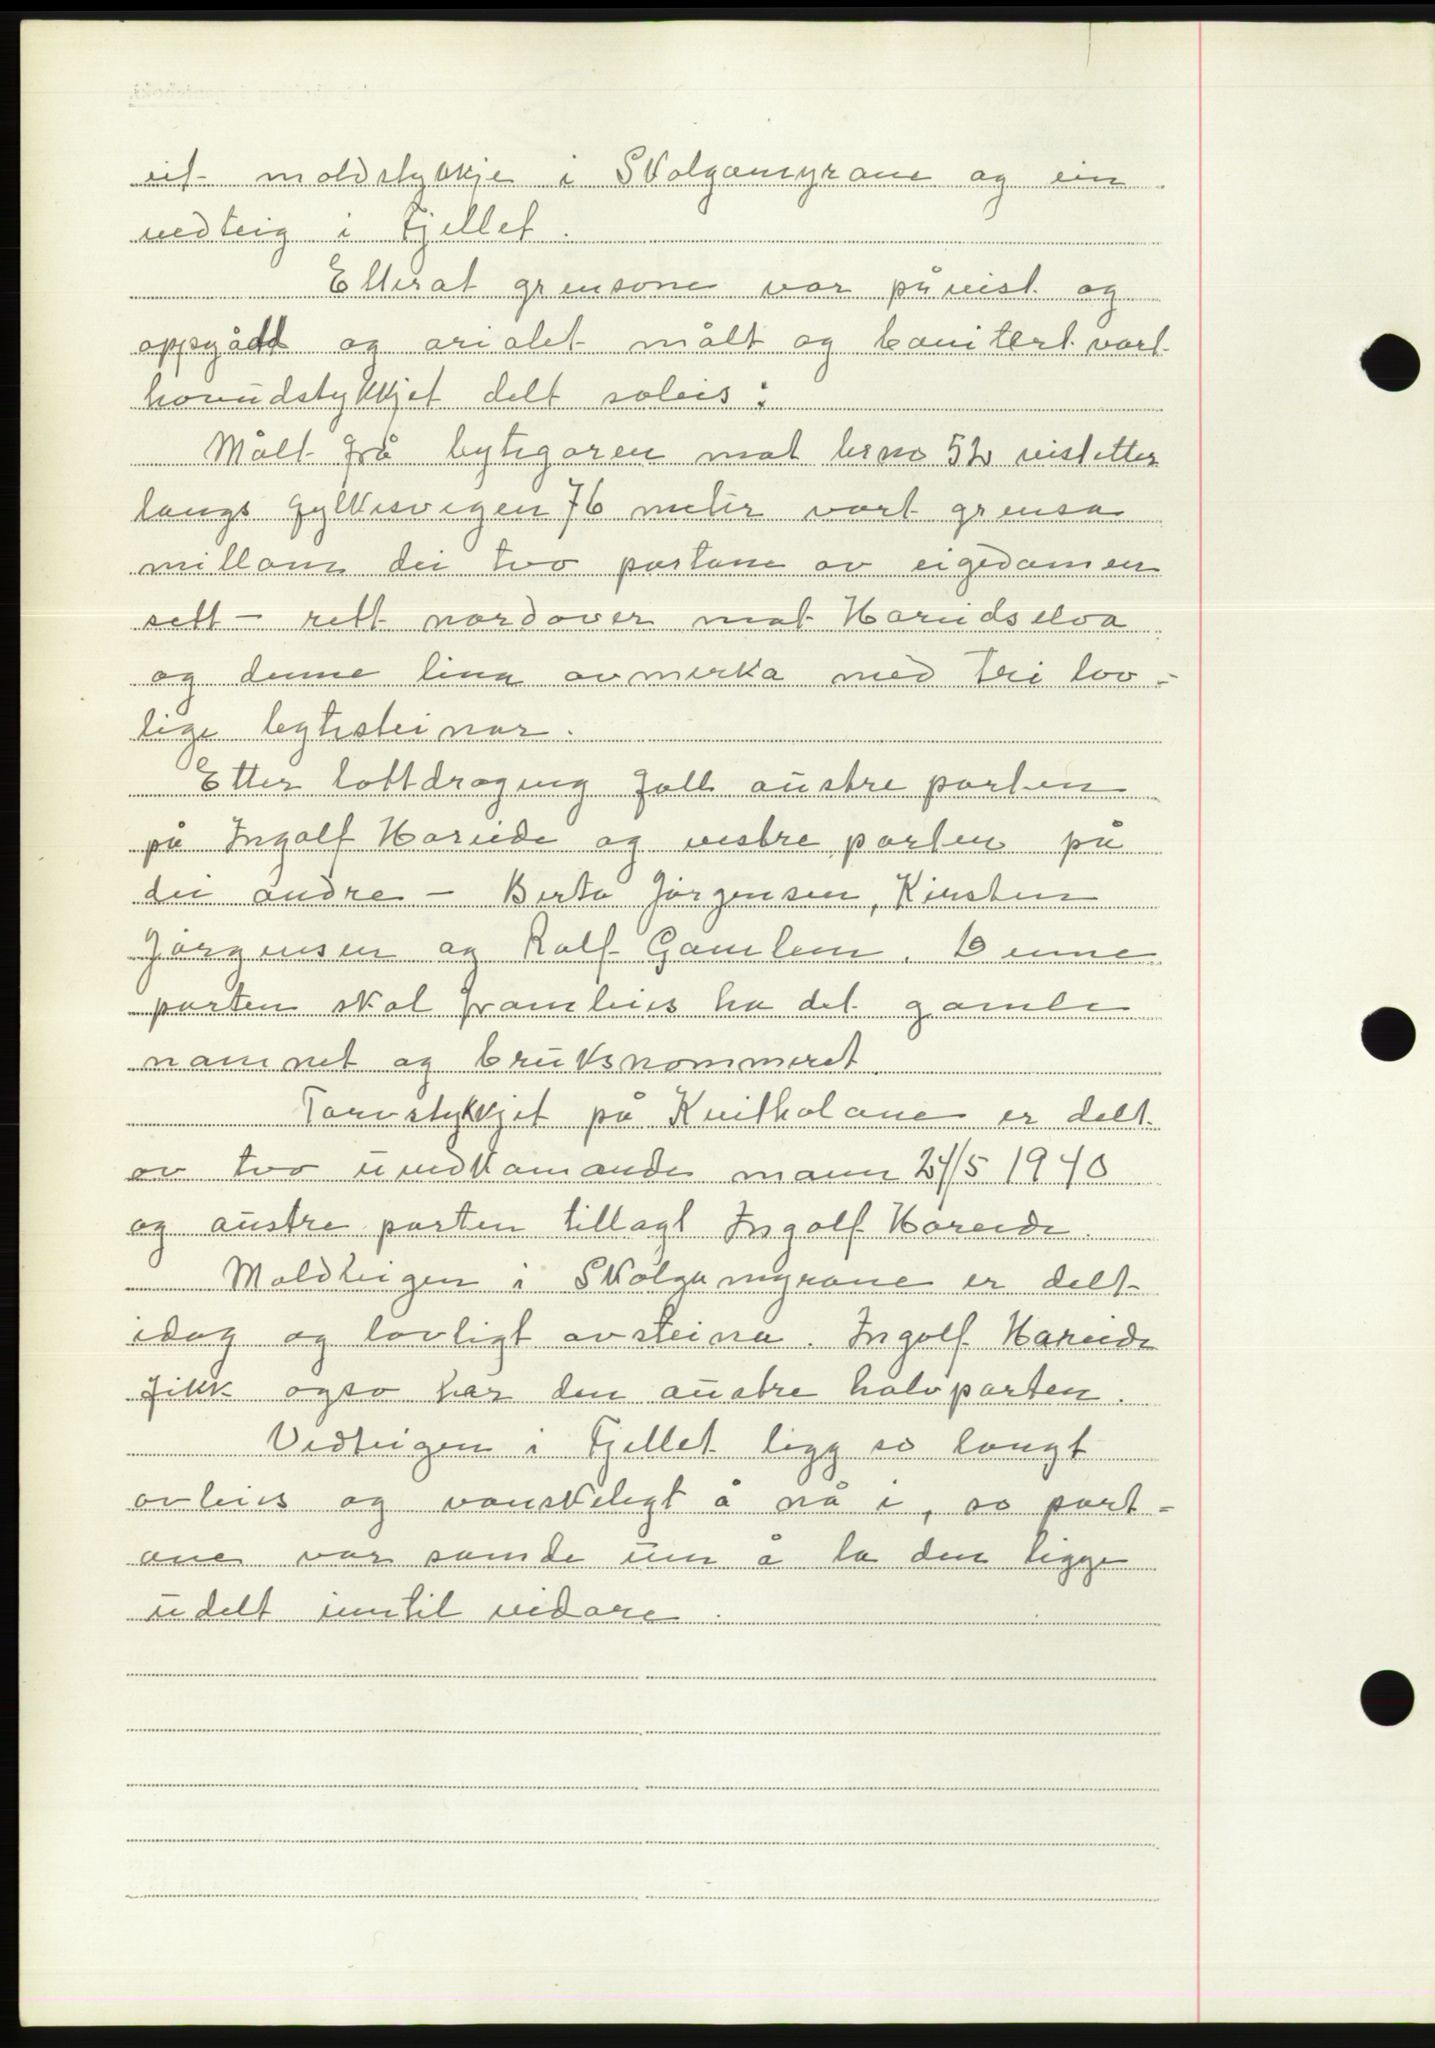 eit moldstykkje i Skolgamyrane og ein
vedteig i Fjellet.
Etterat grensone var påvist og
oppgådd og arialet målt og bonitert vart
hovudstykkjet delt soleis:
Målt frå bytegaren mot brno 52 vestetter
langs Fylkesvegen 76 meter vart grensa
millom dei two partane av eigedomen
sett - rett nordover mot Hareidselva
og denne lina avmerka med tri lov-
lige bytesteinar.
Etter lottdraging fall austre parten
på Ingolf Hareide og vestre parten på
dei andre - Berta Jørgensen, Kirsten
Jørgensen og Rolf Gamlem. Denne
parten skal frambeies ha det gamle
namnet og bruksnommeret.
Torvstykkjet på Kvitholane er delt
av two uvedkomande menn 24/5 1940
og austre parten tillagt Ingolf Hareide.
Moldteigen i Skolgamyrane er delt
idag og lovligt avsteina. Ingolf Hareide
fikk ogso her den austre halvparten.
Vedteigen i Fjellet ligg so langt
avleies og vanskeligt å nå i, so part-
ane var samde um å la den ligge
udelt inntil vidare.